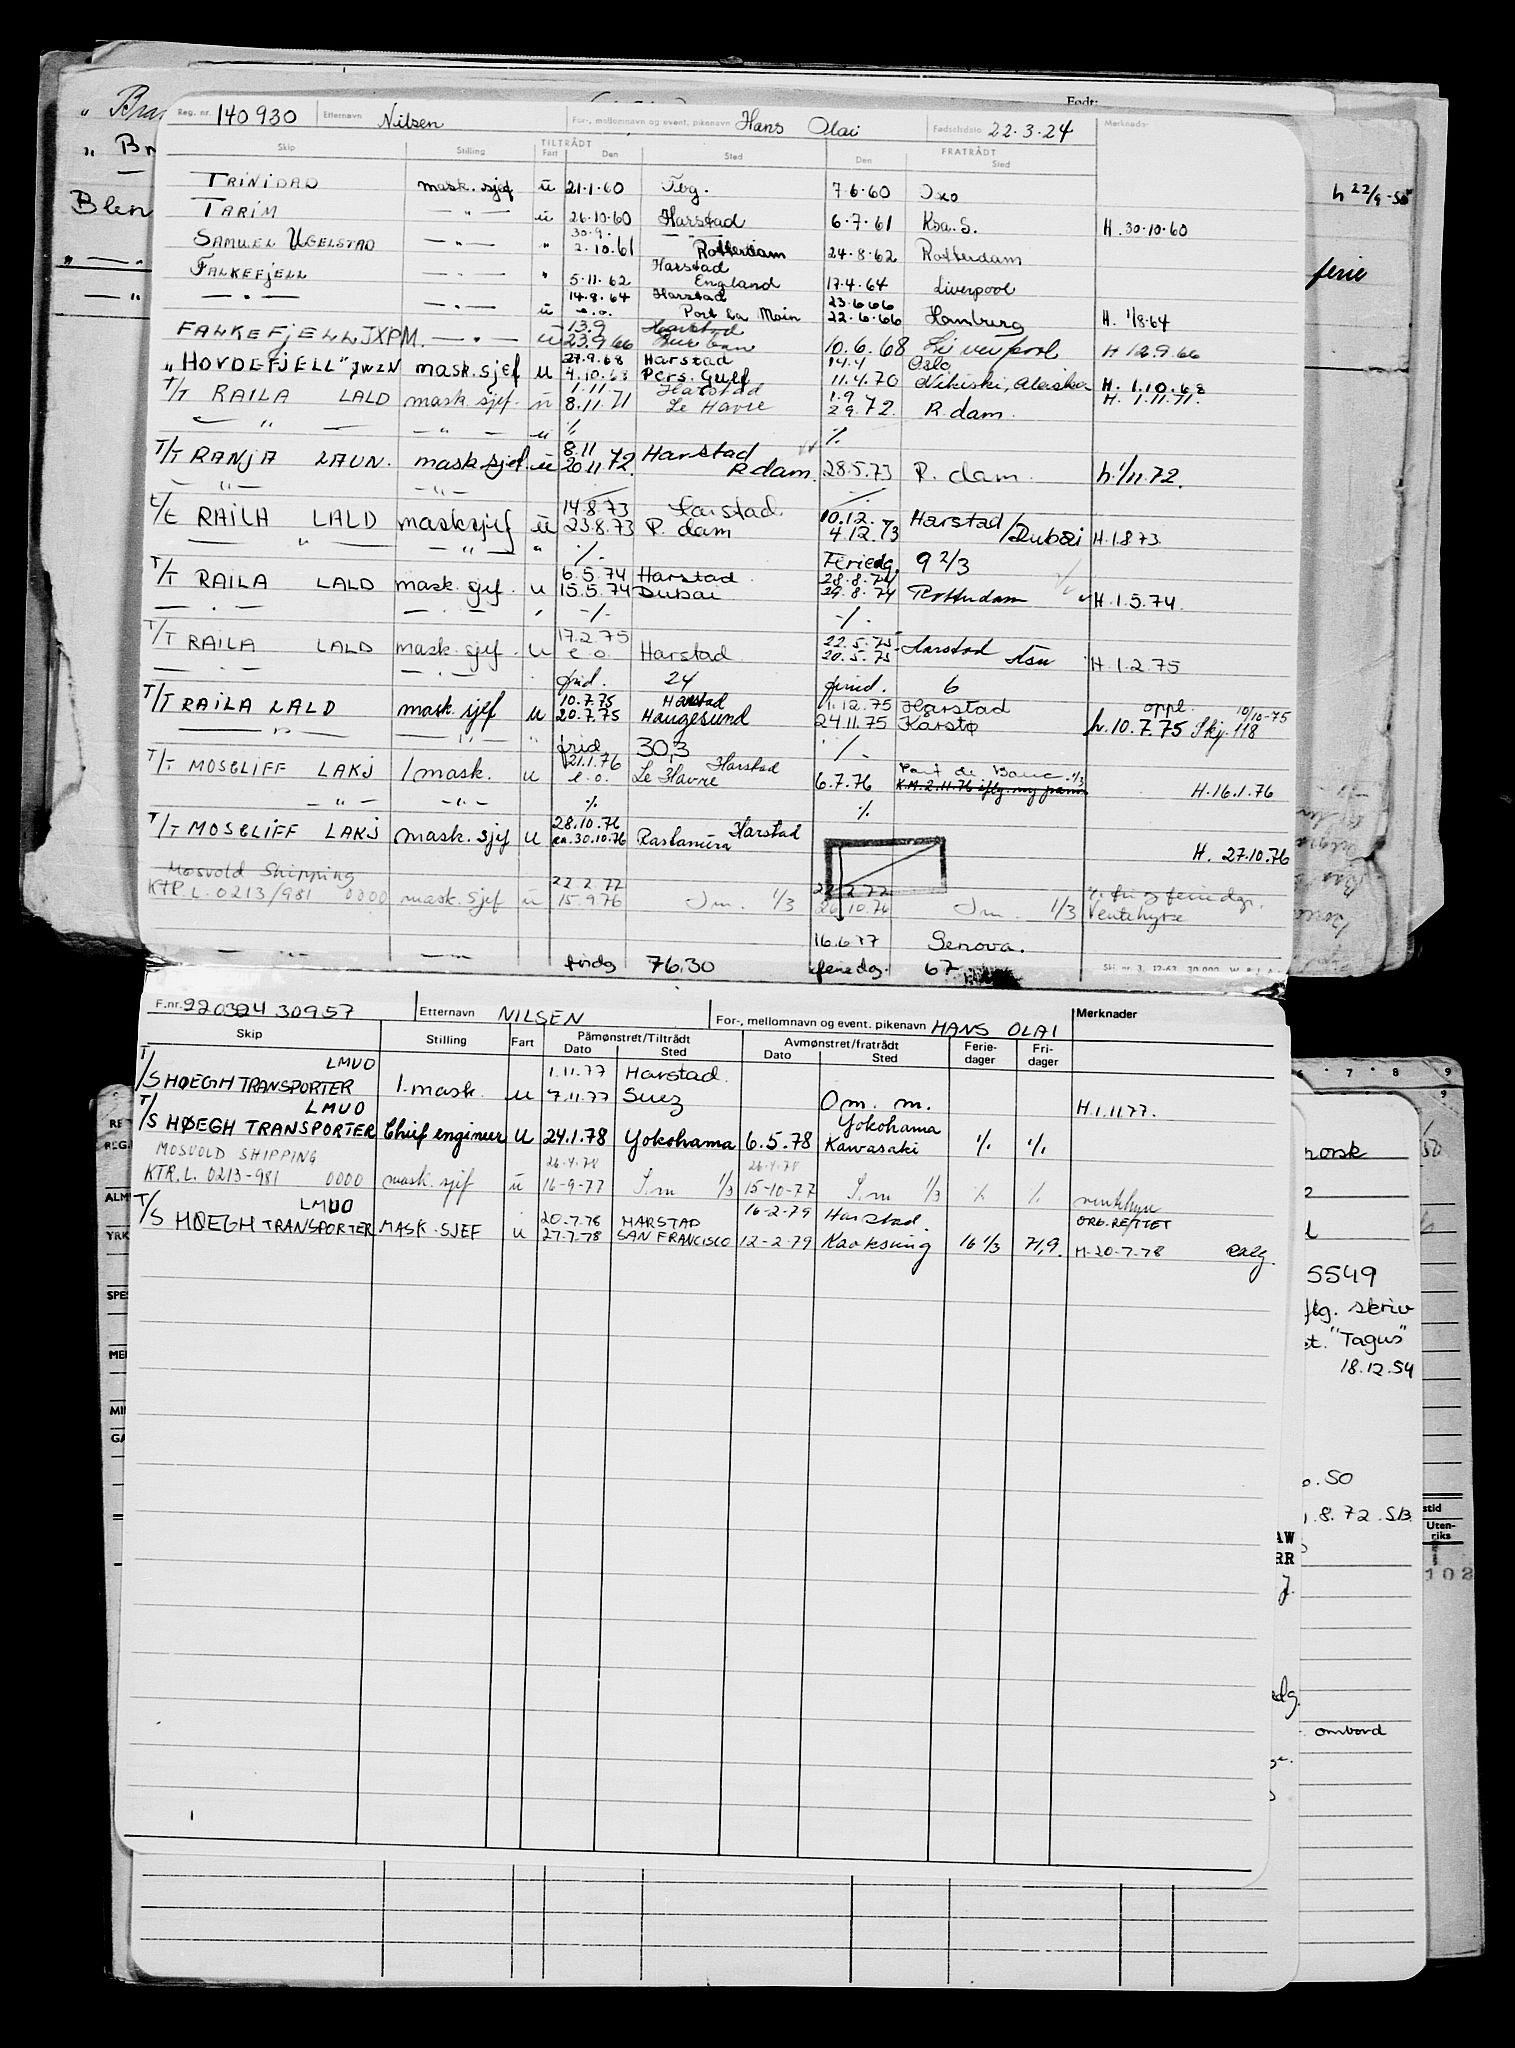 Født:
Reg. nr. 140930 Etternavn Nilsen For-, mellomnavn og event. pikenavn Hans Olai Fødselsdato 22.3.24 Merknader
Skip Stilling Fart TILTRÅDT Den Sted FRATRÅDT Den Sted
TRINIDAD mask. sjef u 21.1.60 Tbg. 7.6.60 Oslo
TARIM — " — u 26.10.60 Harstad 6.7.61 Ksa. S. H. 30.10.60
SAMUEL UGELSTAD — " — " 30.9. 2.10.61 Rotterdam 24.8.62 Rotterdam
FALKEFJELL — " — " 5.11.62 Harstad England 17.4.64 Liverpool
— " — — " — u 14.8.64 e.o. Harstad Port La Main 23.6.66 22.6.66 Hamburg H. 1/8.64
FALKEFJELL JXPM. — " — u 13.9 23.9.66 Harstad 10.6.68 Liverpool H 12.9.66
"HOVDEFJELL" JWZN mask. sjef u 27.9.68 4.10.68 Harstad Pers. Gulf 14.4 11.4.70 Oslo Nikiski, Alaska H. 1.10.68
T/T RAILA LALD mask. sjef. u 1.11 8.11.71 Harstad Le Havre 1.9 2.9.72 R.dam. H. 1.11.71.
— " — — " — u % %
T/T RANJA LAUN. mask. sjef. u 8.11 20.11.72. Harstad R.dam. 28.5.73 R. dam. h. 1/11.72.
— " — — " —
T/T RAILA LALD mask sjef u 14.8.73 23.8.73 Harstad. R. dam 10.12. 4.12.73 Harstad/Dubai H.1.8.73.
— " — — " — " % Feriedg. 9 2/3
T/T RAILA LALD mask. sjef. u 6.5.74 15.5.74 Harstad. Dubai 28.8.74 29.8.74 Rotterdam H.1.5.74.
— " — — " — " % %
T/T RAILA LALD mask. sjef. u 17.2.75 e.o. Harstad 22.5.75 20.5.75 Harstad H.1.2.75
— " — frid. 24 frid. 6
T/T RAILA LALD mask. sjef u 10.7.75 20.7.75 Harstad Haugesund 1.12.75 24.11.75 Harstad Karstø h. 10.7.75 oppl. Skj. 118 10/10-75
— " — — " — " frid 30,3 %
T/T MOSCLIFF LAKJ 1 mask. u 21.1.76 e.o. Harstad Le Havre 6.7.76 Port de Bouc. 1/3 H.16.1.76
— " — — " — % %
T/T MOSCLIFF LAKJ mask. sjef u 28.10.76 30.10.76 Harstad Rastanura H. 27.10.76
Mosvold Shipping
KTR.L. 0213/981 0000 mask. sjef u 22.2.77 15.9.76 Im. 1/3 22.2.77 26.10.76 Im. 1/3 Ventehyre
16.6.77 Genova.
— " — — " — fridg 76.30 feriedg. 67
F.nr. 220324 30957 Etternavn NILSEN For-, mellomnavn og event. pikenavn HANS OLAI Merknader
Skip Stilling Fart Påmønstret/Tiltrådt Dato Sted Avmønstret/fratrådt Dato Sted Ferie-dager Fri-dager
T/S HØEGH TRANSPORTER LMUO 1. mask. u 1.11.77 7.11.77 Harstad. Suez Om. m. H.1.11.77.
T/S HØEGH TRANSPORTER LMUO Chief engineer u 24.1.78 Yokohama 6.5.78 Yokohama Kawasaki % %
MOSVOLD SHIPPING
KTR.L. 0213-981 0000 mask. sjef u 26.4.78 16-9-77 I.m 1/3 26.4.78 15-10-77 I.m 1/3 % % ventehyre
T/S HØEGH TRANSPORTER LMUO MASK. SJEF u 20.7.78 27.7.78 HARSTAD SAN FRANCISCO 16-2-79 12-2-79 Harstad. Kaoksiung 16 1/3 71,9. ORG. RETTET H-20-7-78
Blen
h 22/9-50
ferie
norsk
5549
flg. skriv
et. "Tagus"
18.12.54
.50
.8.72 SB.
Uten-riks
102
ombord